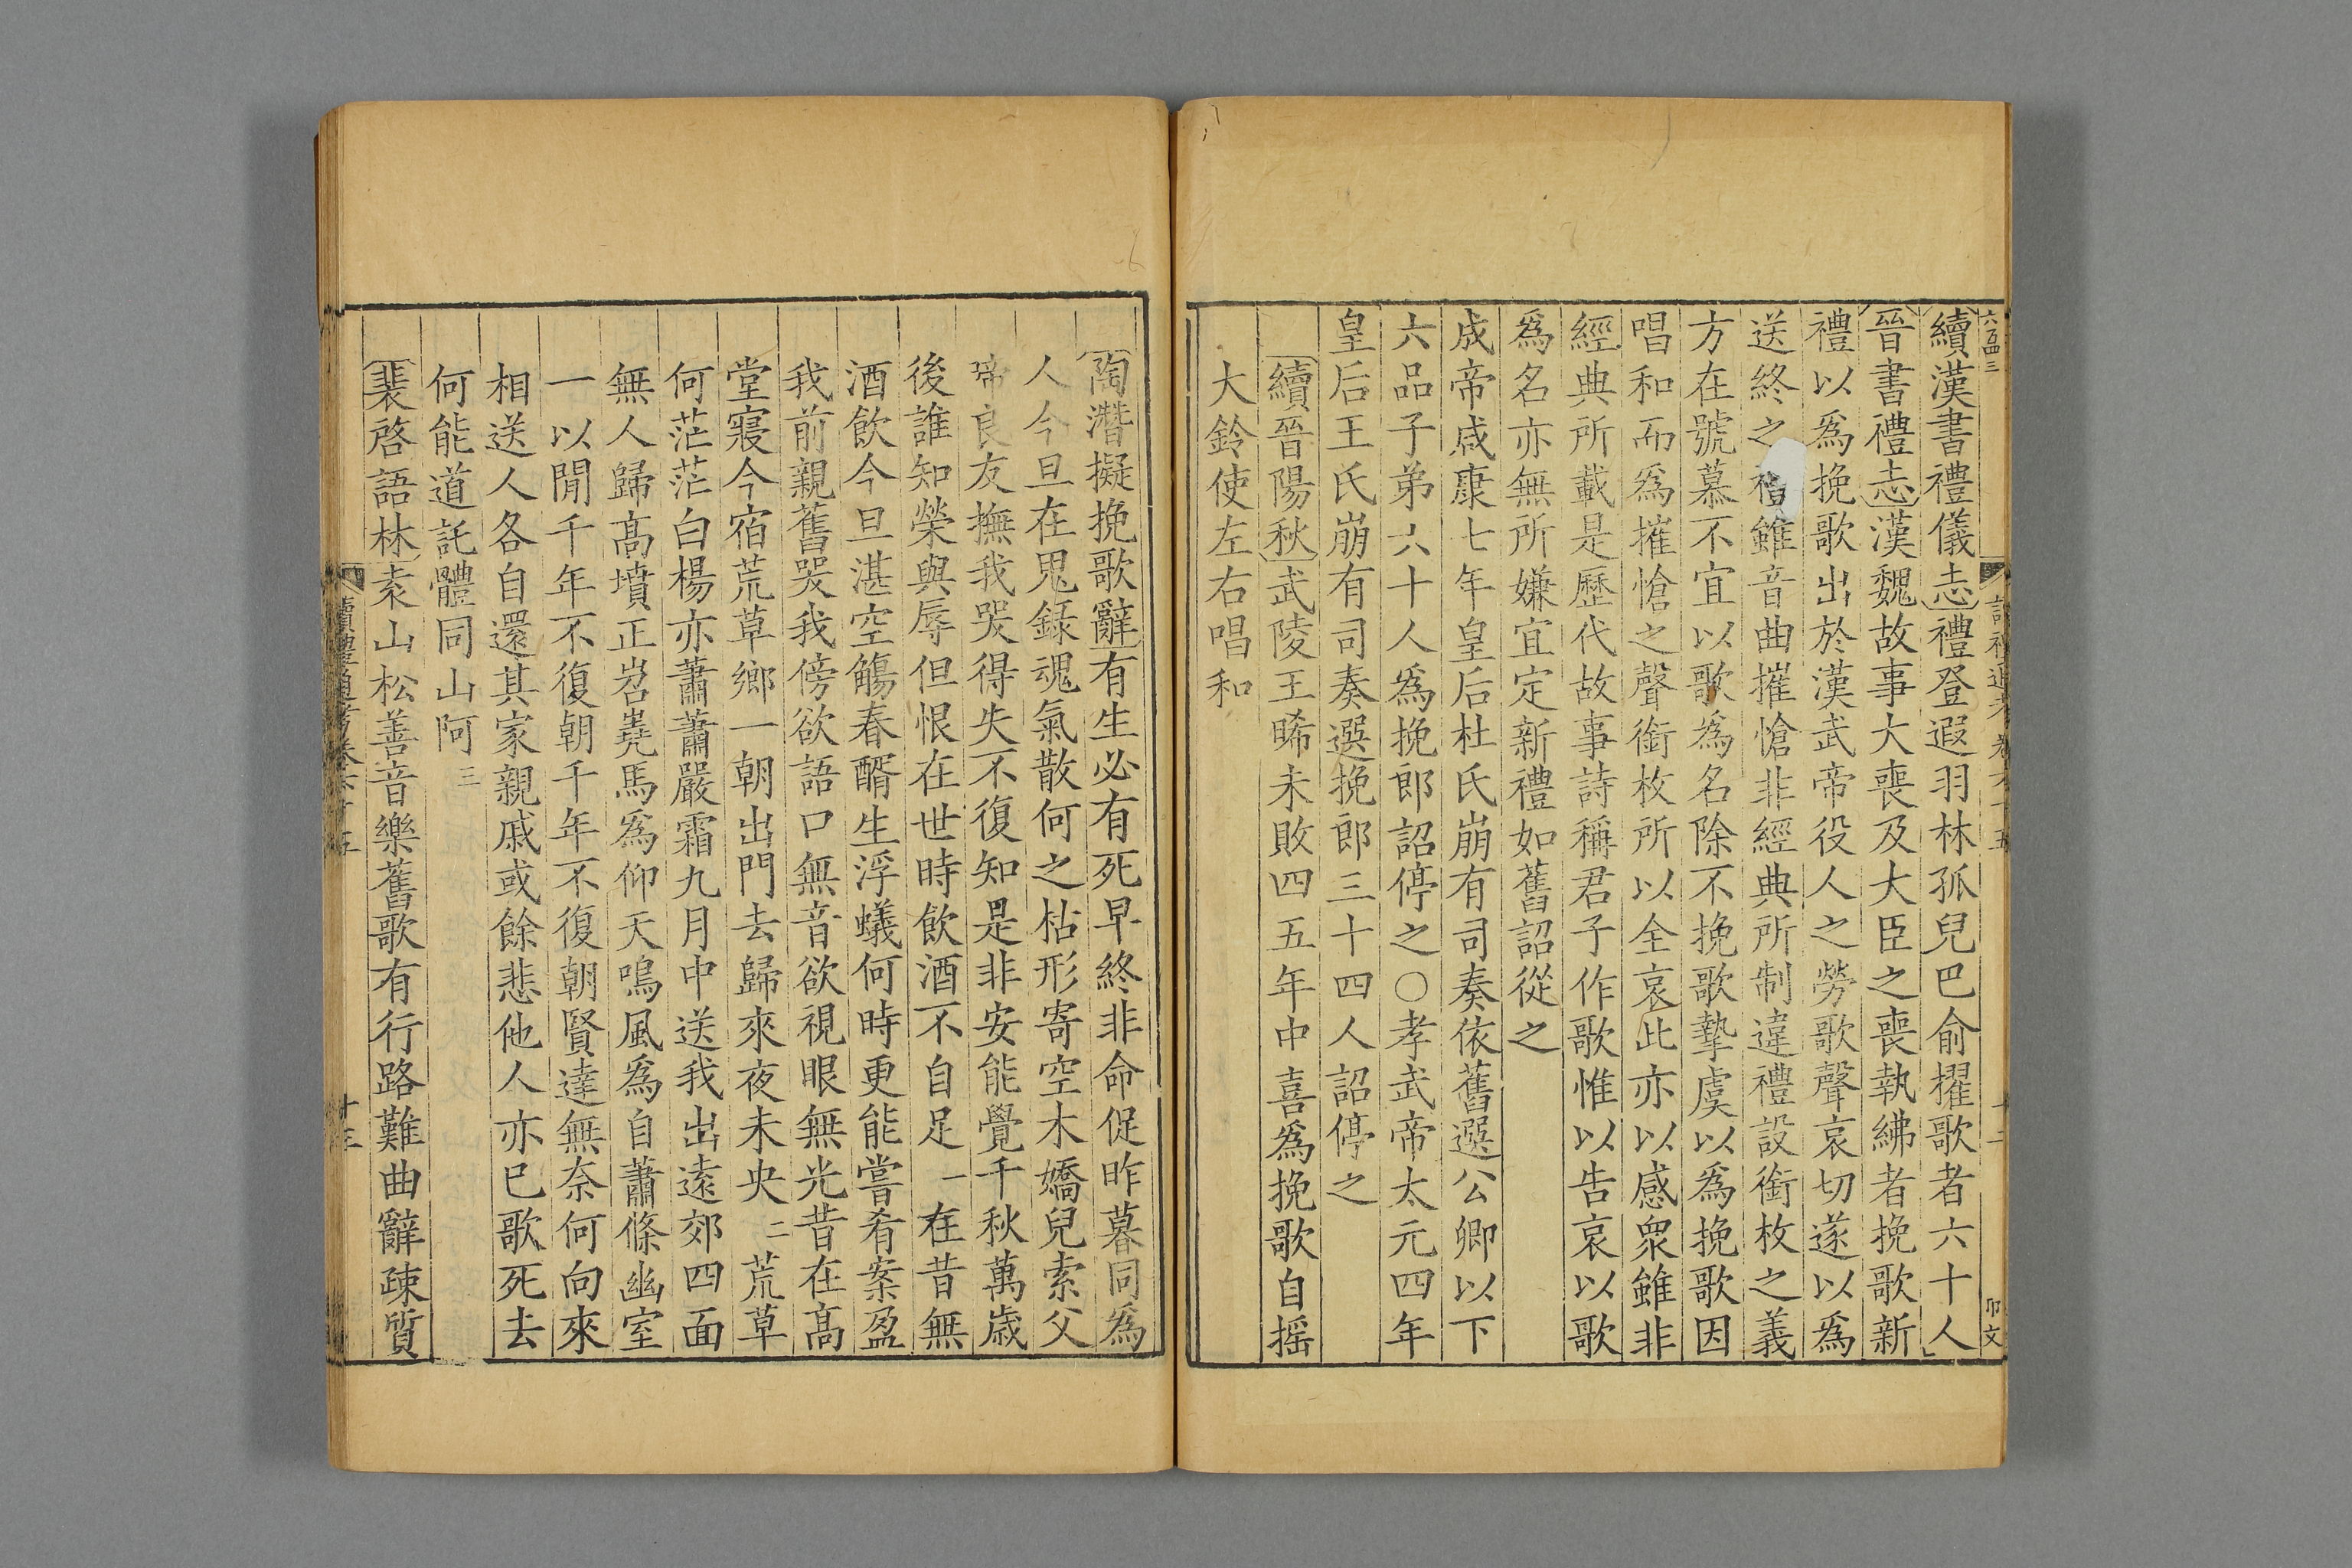 續漢書禮儀志禮登遐羽林孤兒巴俞擢歌者六十人
晉書禮志漢魏故事大喪及大臣之喪執紼者挽歌新
禮以爲挽歌出於漢武帝役人之勞歌聲哀切遂以爲
送終之禮雖音曲摧愴非經典所制違禮設銜枚之義
方在號慕不宜以歌爲名除不挽歌摯虞以爲挽歌因
唱和而爲摧愴之聲銜枚所以全哀此亦以感衆雖非
經典所載是歷代故事詩稱君子作歌惟以告哀以歌
爲名亦無所嫌宜定新禮如舊詔從之
成帝咸康七年皇后杜氏崩有司奏依舊選公卿以下
六品子弟六十人爲挽郎詔停之○孝武帝太元四年
皇后王氏崩有司奏選挽郎三十四人詔停之
續晉陽秋武陵王晞未敗四五年中喜爲挽歌自摇
大鈴使左右唱和
陶潛擬挽歌辭有生必有死早終非命促昨暮同爲
人今旦在鬼錄魂氣散何之枯形寄空木嬌兒索父
啼良友撫我哭得失不復知是非安能覺千秋萬歳
後誰知榮與辱但恨在世時飲酒不自足一在昔無
酒飲今旦湛空觴春醑生浮蟻何時更能嘗肴案盈
我前親舊哭我傍欲語口無音欲視眼無光昔在高
堂寢今宿荒草鄉一朝出門去歸來夜未央二荒草
何茫茫白楊亦蕭蕭嚴霜九月中送我出遠郊四面
無人歸高墳正岧嶤馬爲仰天鳴風爲自蕭條幽室
一以閒千年不復朝千年不復朝賢達無奈何向來
相送人各自還其家親戚或餘悲他人亦已歌死去
何能道託體同山阿三
裴啓語林袁山松善音樂舊歌有行路難曲辭疎質
讀禮通考卷六十五
十三